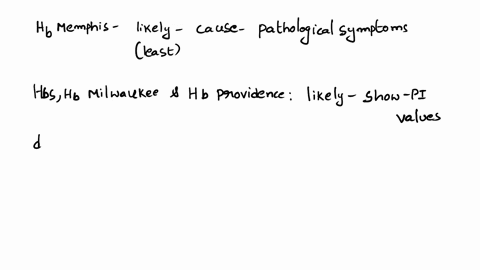 Hb Memphis - likely - cause - pathological symptoms
(least)
Hbs, Hb Milwaukee & Hb Providence: likely - show - PI
values
d